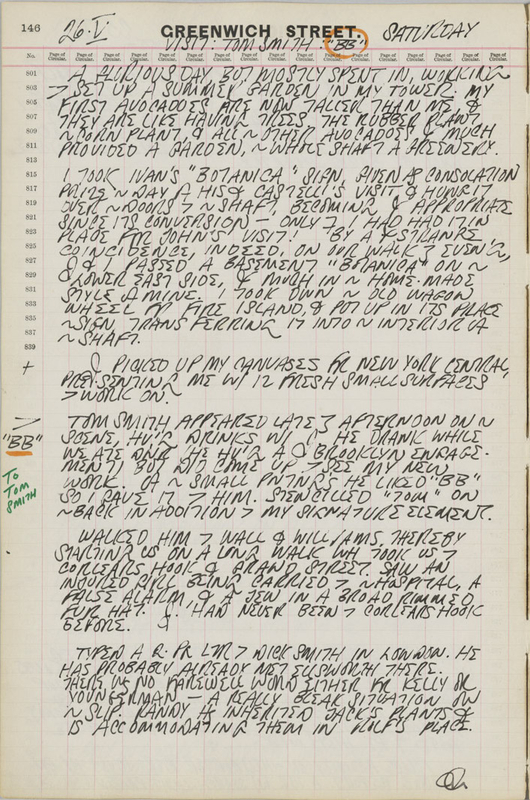 146
26·V
GREENWICH STREET.
SATURDAY
VISIT: TOM SMITH. "BB"
No. Page of Circular. Page of Circular. Page of Circular. Page of Circular. Page of Circular. Page of Circular. Page of Circular. Page of Circular. Page of Circular. Page of Circular.
801 A GLORIOUS DAY, BUT MOSTLY SPENT IN WORKING
803 > SET UP A SUMMER GARDEN IN MY TOWER. MY
805 FIRST AVOCADOES ARE NOW TALLER THAN ME &
807 THEY ARE LIKE HAVING TREES. THE RUBBER PLANT,
809 ~ CORN PLANT, & ALL ~ OTHER AVOCADOES & MUCH
811 PROVIDED A GARDEN, ~ WHOLE SHAFT A GREENERY.
813
815 I TOOK IVAN'S "BOTANICA" SIGN, GIVEN AS CONSOLATION
817 PRIZE ~ DAY A HIS & CASTELLI'S VISIT & HUNG IT
819 OVER ~ DOORS > ~ SHAFT, BECOMING & APPROPRIATE
821 SINCE ITS CONVERSION – ONLY I HAD HAD IT IN
823 PLACE FOR JOHN'S VISIT! BY A STRANGE
825 COINCIDENCE, INDEED, ON OUR WALK EVEN'G,
827 PASSED A BASEMENT "BOTANICA" ON ~
829 LOWER EAST SIDE, & MUCH IN ~ HOME-MADE
831 STYLE A MINE. I TOOK DOWN ~ OLD WAGON
833 WHEEL FR FIRE ISLAND, & PUT UP IN ITS PLACE
835 ~ SIGN, TRANSFERRING IT INTO ~ INTERIOR A
837 ~ SHAFT.
839
+ PICKED UP MY CANVASES FR NEW YORK CENTRAL,
PRESENTING ME W/ 12 FRESH SMALL SURFACES
> WORK ON.
> TOM SMITH APPEARED LATE AFTERNOON ON ~
"BB" SCENE, HV'G DRINKS W/ HE DRANK WHILE
WE ATE DNR (HE HV'G A BROOKLYN ENGAGE-
MENT) BUT DID COME UP > SEE MY NEW
TO TOM SMITH
WORK. A ~ SMALL PNTNGS HE LIKED "BB"
SO I GAVE IT > HIM. STENCILLED "TOM" ON
~ BACK IN ADDITION > MY SIGNATURE ELEMENT.
WALKED HIM > WALL & WILLIAMS, THEREBY
STARTING US ON A LONG WALK WH TOOK US >
CORLEARS HOOK & GRAND STREET. SAW AN
INJURED GIRL BEING CARRIED > ~ HOSPITAL, A
FALSE ALARM, & A JEW IN A BROAD RIMMED
FUR HAT. HAD NEVER BEEN > CORLEARS HOOK
BEFORE.
TYPED A LTR > DICK SMITH IN LONDON. HE
HAS PROBABLY ALREADY MET ELLSWORTH THERE.
THERE WS NO FAREWELL WORD EITHER FR KELLY OR
YOUNGERMAN. A REALLY BLEAK SITUATION ON
~ SLIP. RANDY HS INHERITED JACK'S PLANTS &
IS ACCOMMODATING THEM IN ROLF'S PLACE.